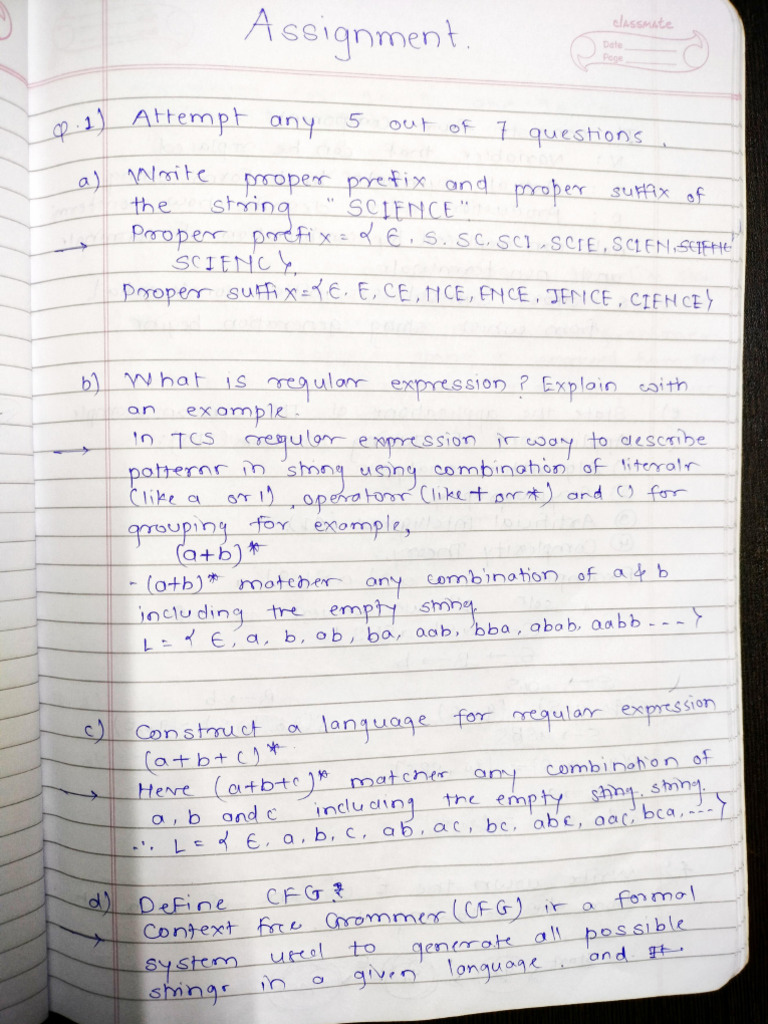 Assignment.
classmate
Date
Page
Q.1) Attempt any 5 out of 7 questions.
a) Write proper prefix and proper suffix of
the string "SCIENCE"
→ Proper prefix = { ε, S, SC, SCI, SCIE, SCIEN,
SCIENC}.
Proper suffix = {ε, E, CE, NCE, ENCE, IENCE, CIENCE}
b) What is regular expression? Explain with
an example.
→ In TCS regular expression is way to describe
patterns in string using combination of literals
(like a or 1), operators (like + or *) and () for
grouping for example,
(a+b)*
- (a+b)* matches any combination of a & b
including the empty string.
L = { ε, a, b, ab, ba, aab, bba, abab, aabb ---- }
c) Construct a language for regular expression
(a+b+c)*
→ Here (a+b+c)* matches any combination of
a, b and c including the empty sting. string.
∴ L = { ε, a, b, c, ab, ac, bc, abc, aac, bca, ---}
d) Define CFG?
→ Context free Grammer (CFG) is a formal
system used to generate all possible
strings in a given language. and